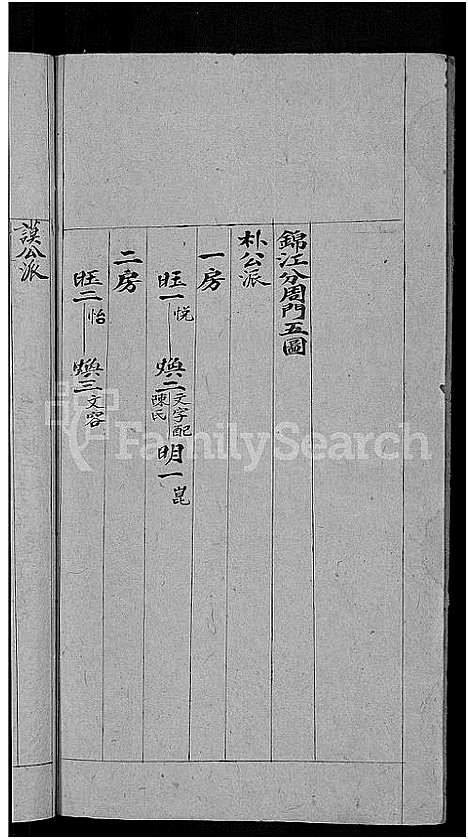 錦江分周門五圖
朴公派
一房
旺一悅 煥二文字配陳氏 明一崑
二房
旺二怡 煥三文容
謨公派
FamilySearch